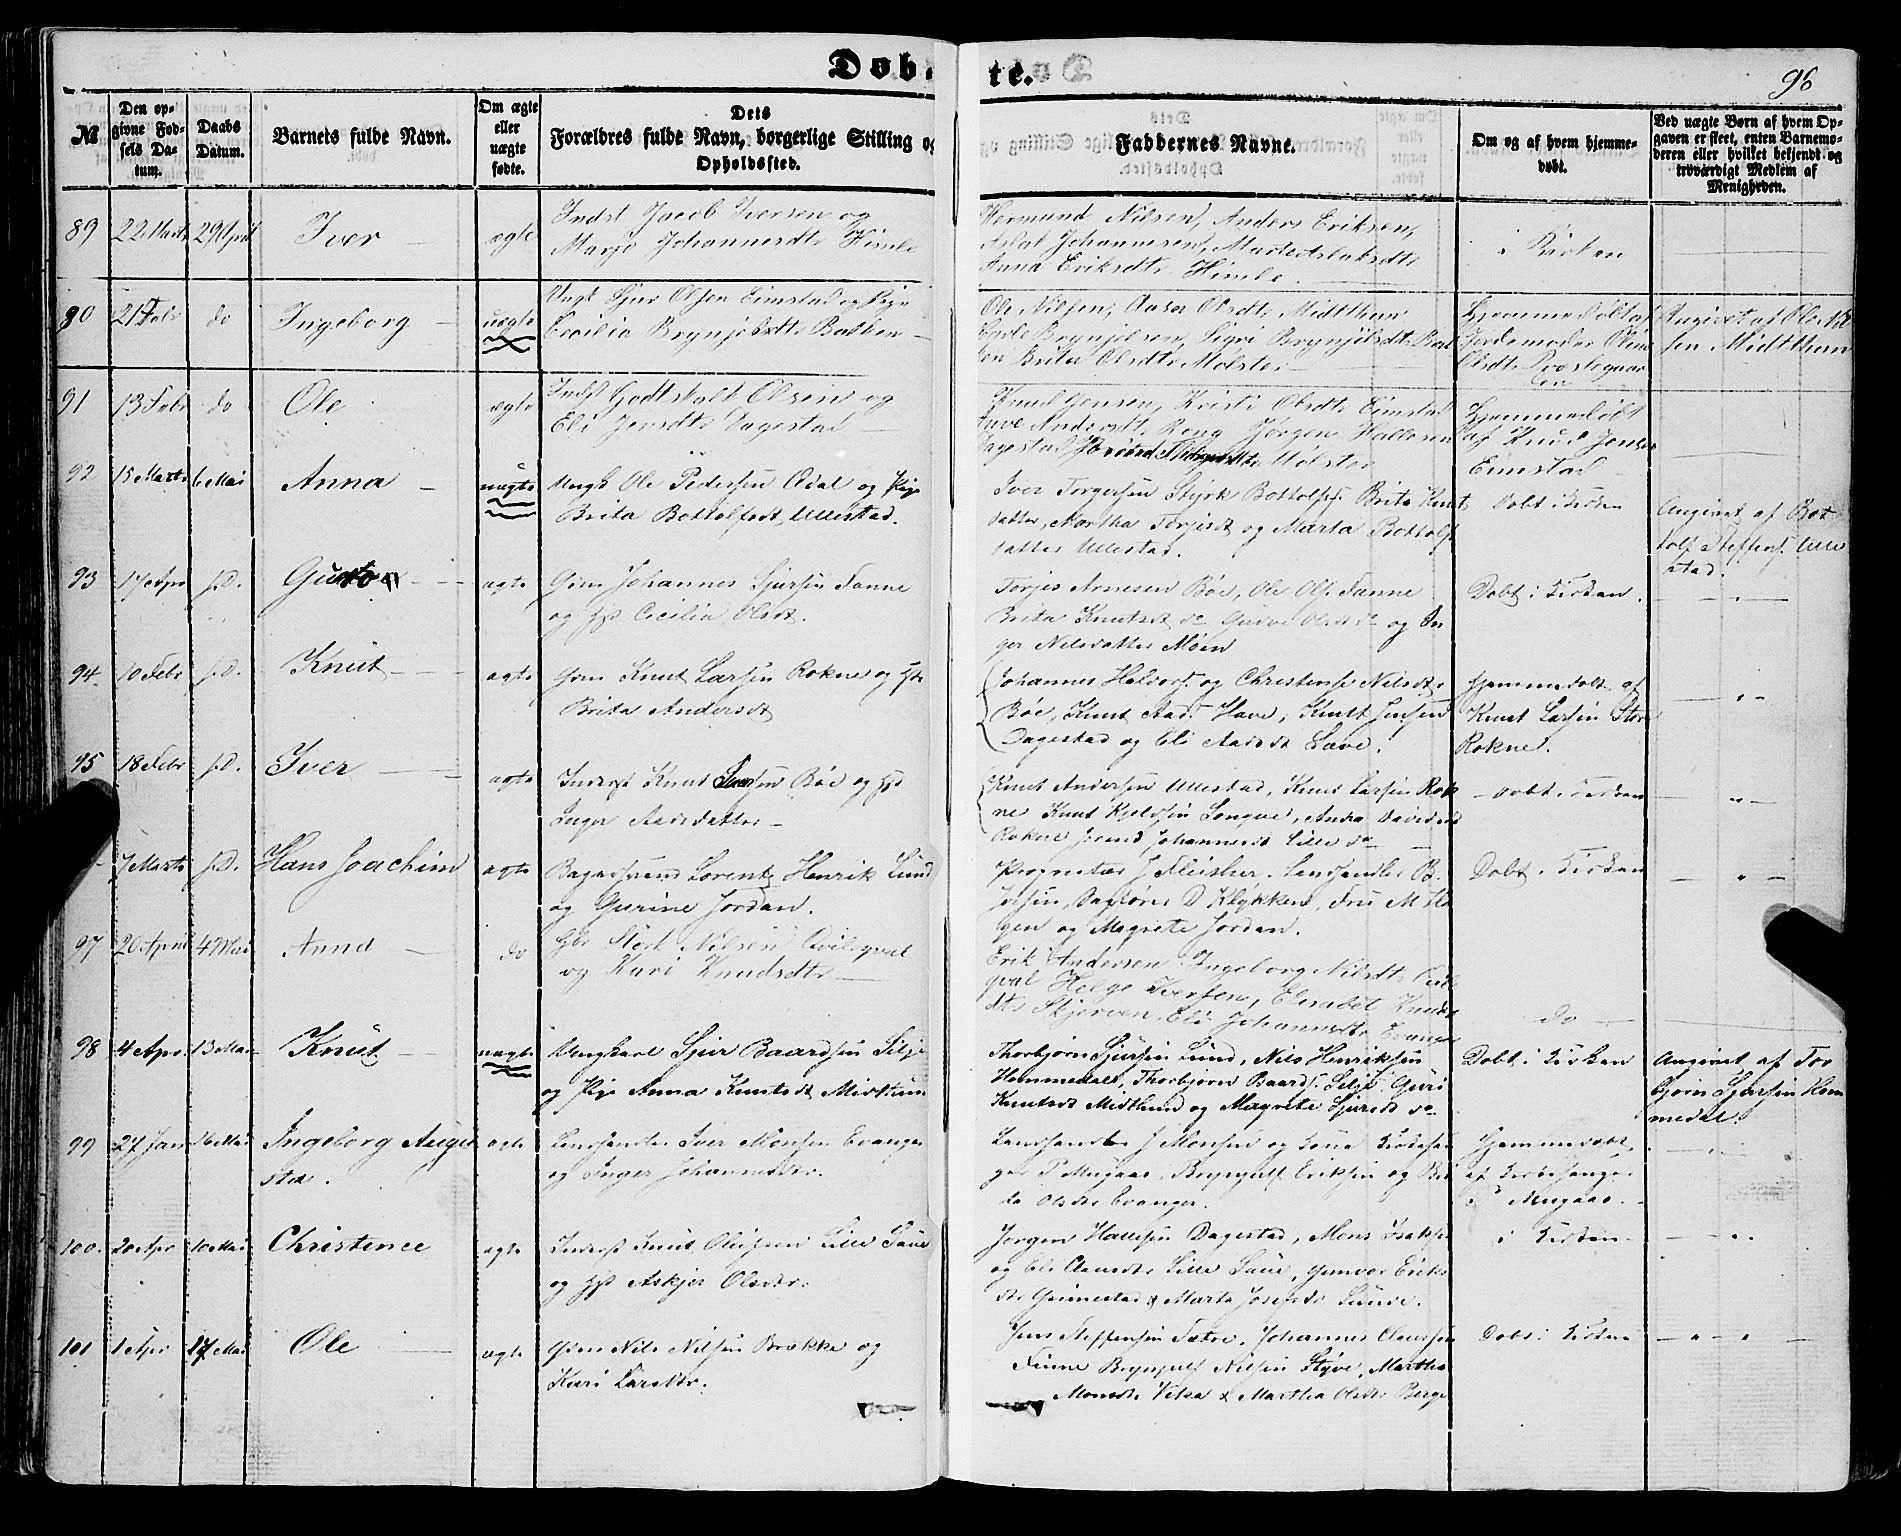 Døbte.
96
№
Den opgivne Fødsels Datum.
Daabs Datum.
Barnets fulde Navn.
Om ægte eller uægte fødte.
Dets Forældres fulde Navn, borgerlige Stilling og Opholdssted.
Faddernes Navne.
Om og af hvem hjemmedøbt.
Ved uægte Børn af hvem Opgaven er skeet, enten Barnemoderen eller hvilket bekjendt og troværdigt Medlem af Menigheden.
89 22 Marts 29 April Iver ægte
Indst Jacob Iversen og
Marjo Johannesdtr Himle
Hermund Nilsen, Anders Eriksen,
Aslak Johannesen, Marte Aslaksdtr
Anna Eriksdtr Himle
i Kirken
90 21 Febr do Ingeborg uægte
Ungk Sjur Olsen Eimstad og Pige
Cecilia Brynjolsdtr Bakken
Ole Nilsen, Aase Olsdtr Midtthun
Brynjolsen, Sigri Brynjolsdtr Bak
ken Brita Olsdtr Mølster
Hjemmedøbt af
Jordemoder
Olsdtr Præstegaar
den
Angivet af Ole Nil
sen Midtthun
91 13 Febr do Ole ægte
Indst Godtskalk Olsen og
Eli Jensdtr Dagestad
Knud Jensen, Kristi Olsdtr Eimstad
Andersdtr Jørgen Hallesen
Dagestad Mølster
Hjemmedøbt
af Knud Jensen
Eimstad
92 15 Marts 6 Mai Anna uægte
Ungk Ole Pedersen Odal og Pige
Brita Bottolfsdt Ullestad.
Iver Torgersen Styrk Bottolfs. Brita Knuts
datter, Martha Torjisdt og Marta Bottolfs
datter Ullestad.
Døbt i Kirken
Angivet af Bot
tolf Steffens. Ulle
stad.
93 17 Apr s.D. Gustav ægte
Gbm Johannes Sjursen Fenne
og Hst Cecilia Olsdt.
Torjes Arnesen Bøe, Ole Ols. Fenne
Brita Knutsdt do Gudve Olsdt do og In
ger Nilsdatter Møen
Døbt i Kirken.
94. 10 Febr s.D. Knut ægte
Gbm Knut Larsen Rokne og Hst
Brita Andersdt
Johannes Haldors. og Christense Nilsdtr
Bøe, Knut Aads. Have, Knut Jensen
Dagestad og Eli Aadsdt Læve.
Hjemmedøbt af
Knut Larsen Stor
Rokne.
95 18 Febr s.D. Iver ægte
Inderst Knut Iversen Bøe og Hst
Inger Aadsdatter
Knut Andersen Ullestad, Knut Larsen Rok
ne Knut Kjeldsen Longve, Anna Davidsdt
Rokne Johannesdt Lille do
Døbt i Kirken
7 Marts s.D. Hans Joachim ægte
Bagersvend Lorentz Henrik Lund
og Gurine Jordan.
Proprietær J Fleischer. Landhandler B.
D Klykken, Fru M Ha
gen og Magrete Jordan.
Døbt i Kirken
97 20 April 4 Mai Anna do
Gbr Sterk Nilsen Qvileqval
og Kari Knudsdtr
Erik Andersen Ingeborg Nilsdtr Qvile
qval Helge Iversen, Elisabet Knuds
dtr Skjerven, Eli Johannesdtr Evanger
do
98 4 Apr. 13 Mai Knut uægte
Ungkarl Sjur Baardsen Silje
og Pige Anna Knutsdt Midttun
Thorbjørn Sjursen Lund, Nils Henriksen
Hommedal, Thorbjørn Baards. Silje. Guri
Knutsdt Midthund og Magrete Sjursdt do
Døbt i Kirken
Angivet af Tor
bjørn Sjursen Hom
medal.
99 27 Jan 16 Mai Ingeborg Augu ægte
sta.
Landhandler Iver Monsen Evanger
og Inger Johannesdtr.
Landhandler J Monsen og Kone Kirkesan
ger P Mugaas, Brynjulf Eriksen og Bri
ta Olsdtr Evanger.
Hjemmedøbt
af Kirkesanger
P Mugaas.
100. 20 Apr 10 Mai Christence ægte
Inderst Knut Olsen Lille Saue
og Hst Askjer Olsdtr.
Jørgen Hallesen Dagestad, Mons Isaksen
og Eli Clausdtr Lille Saue, Gunvor Eriks
dtr Grimestad & Marta Josefsdtr Lunde.
i Kirken
101 1 Apr 17 Mai Ole ægte
Gbm Nils Nilsen Brække og
Kari Larsdtr.
Jens Steffensen Fætre, Johannes Clausen
Finne Brynjulf Nilsen Styve, Martha
Monsdtr Vikse & Martha Olsdtr Berge
Døbt i Kirken